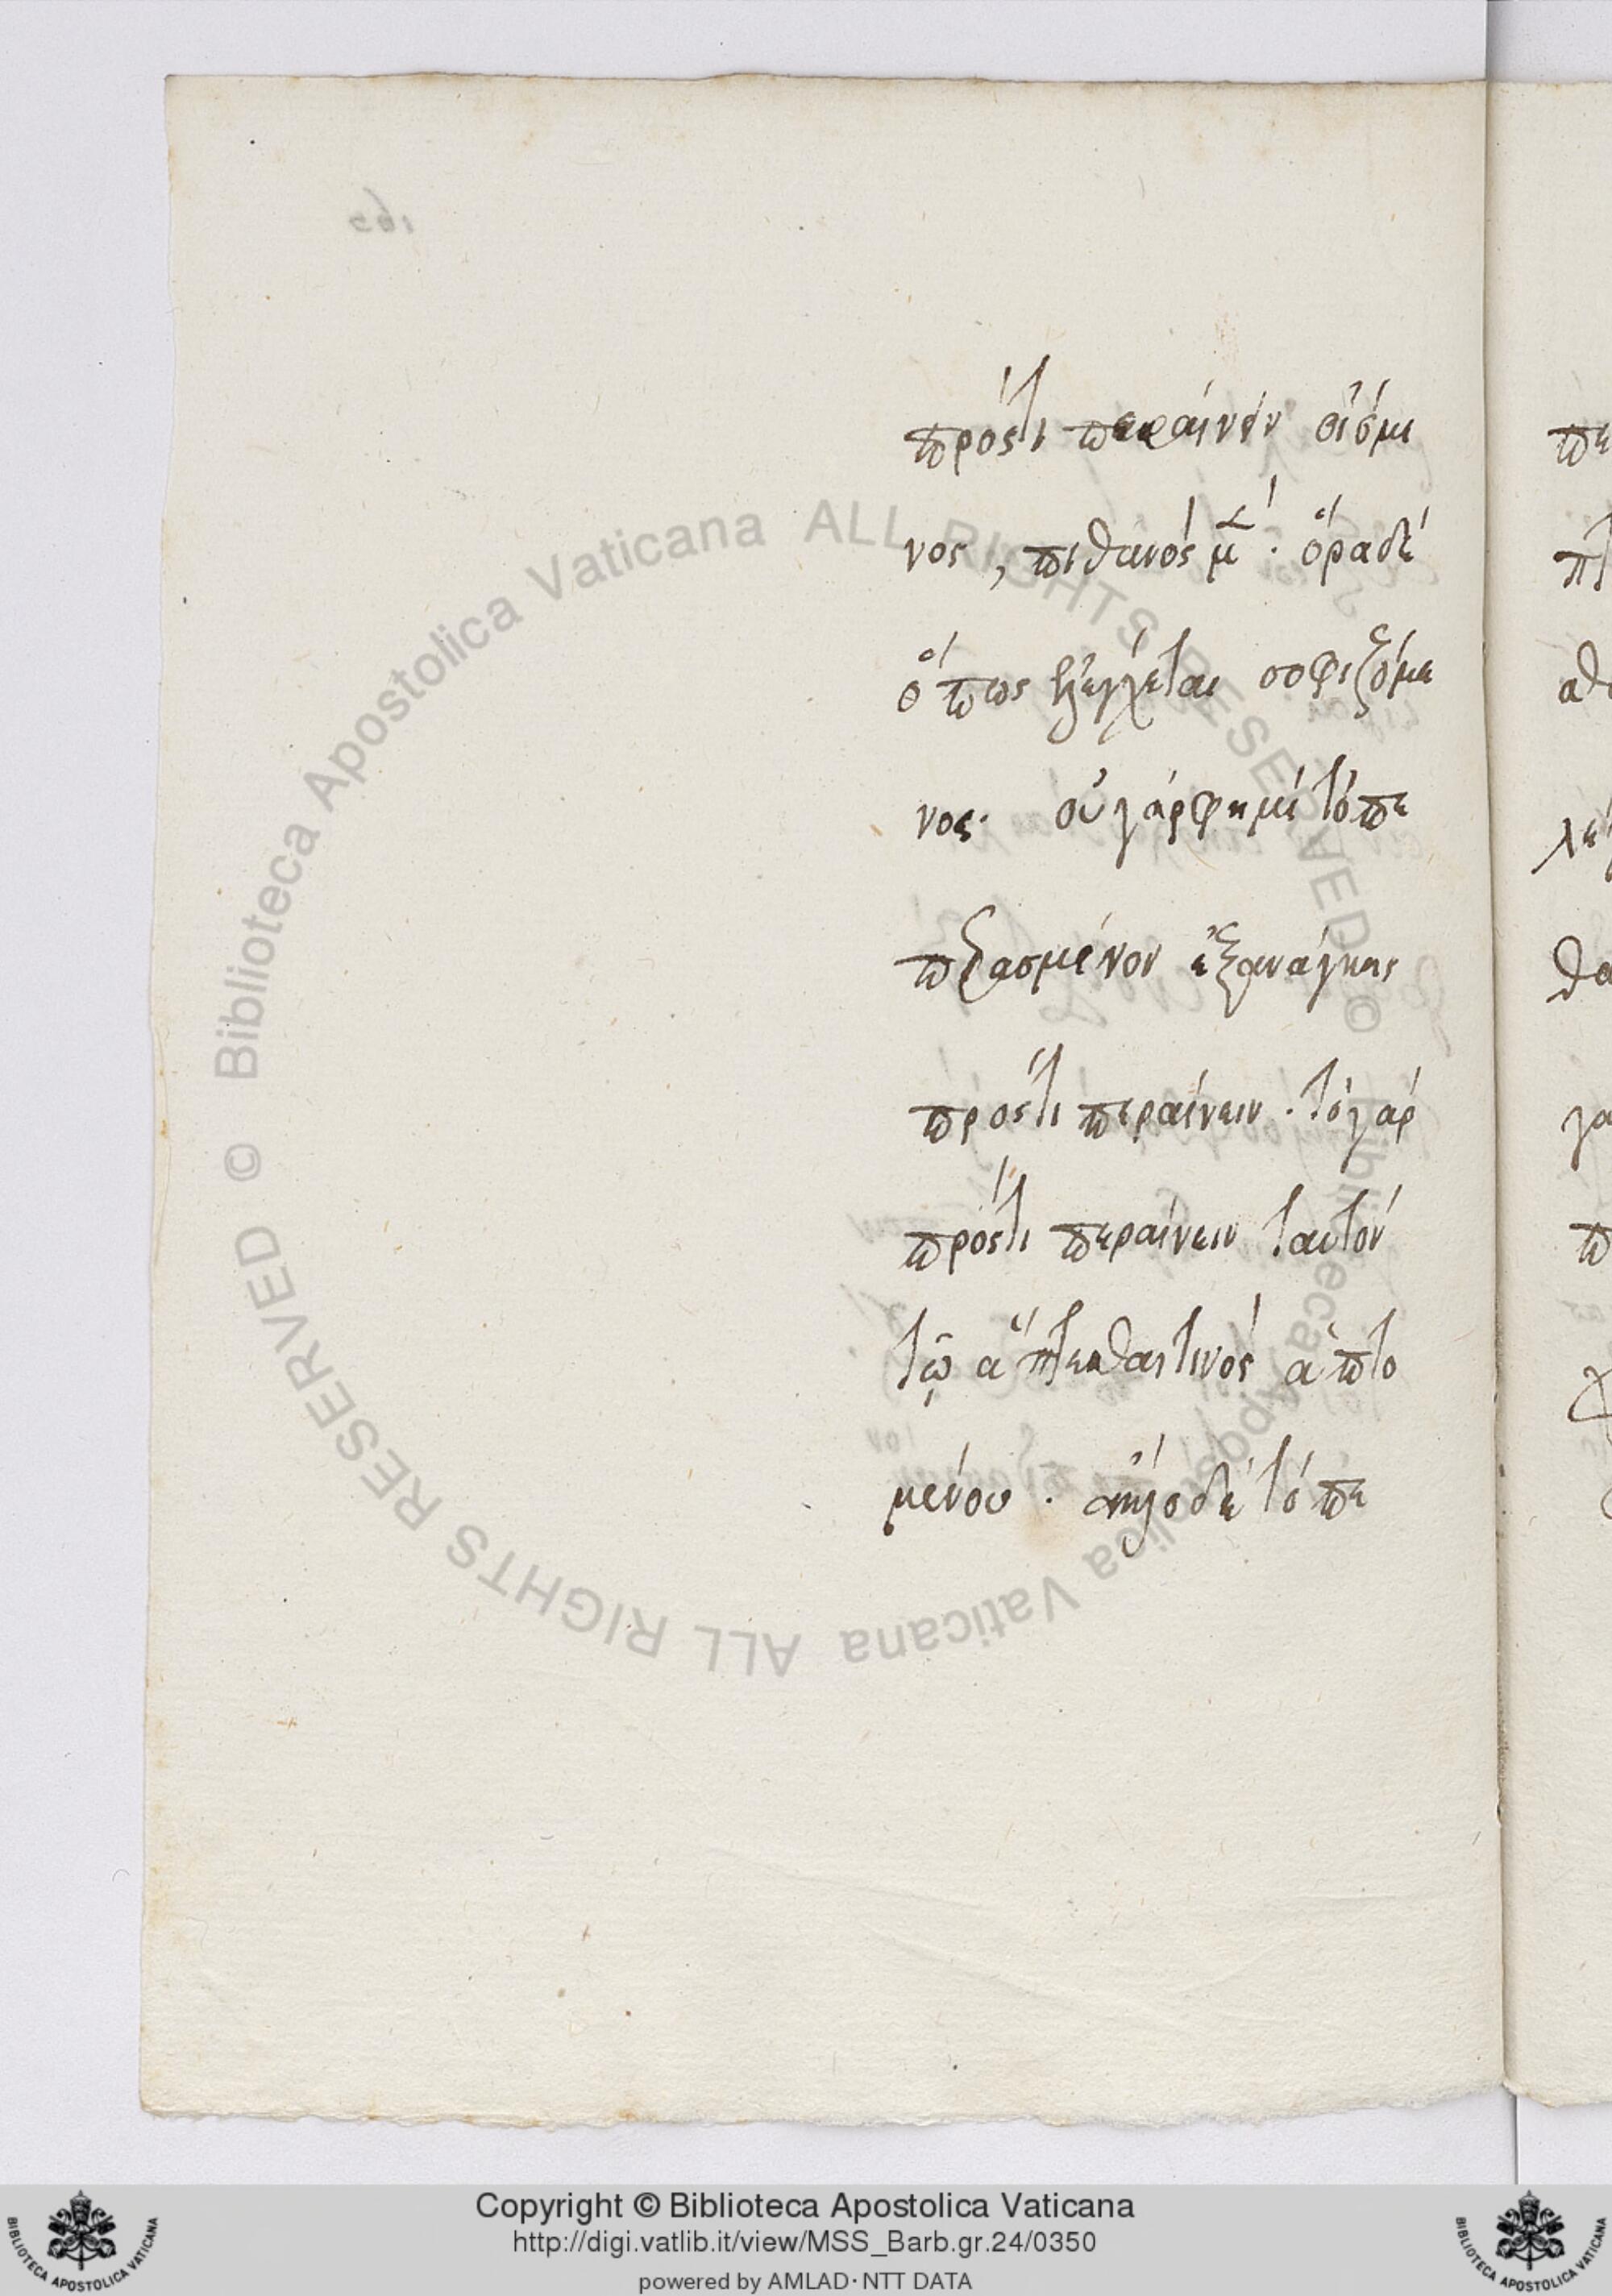 πρός τι περαίνειν οἰόμε
νος, πιθανός μ̃. ὅρα δὲ
ὅπως ἐλέγχεται σοφιζόμε
νος. οὐ γάρ φημι τὸ πε
περασμένον ἐξανάγκης
πρός τι περαίνειν. τὸ γάρ
πρός τι περαίνειν ταυτὸν
τῷ ἅπτεσθαι τινὸς ἁπτο
μένου. ἀλλὸ δὲ τὸ πε
© Biblioteca Apostolica Vaticana ALL RIGHTS RESERVED © Biblioteca Apostolica Vaticana ALL RIGHTS RESERVED
Copyright © Biblioteca Apostolica Vaticana
http://digi.vatlib.it/view/MSS_Barb.gr.24/0350
powered by AMLAD·NTT DATA
BIBLIOTECA APOSTOLICA VATICANA
BIBLIOTECA APOSTOLICA VATICANA